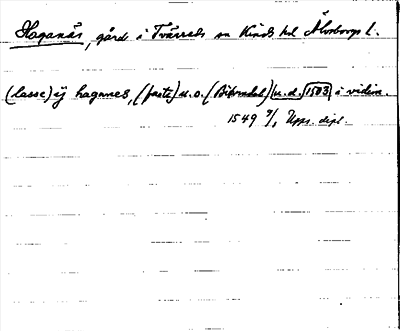 Haganäs, gård i Tvärreds sn Kinds hd Älvsborgs l.
(lasse) ij haganes, (faste) u. o. (Bikendal) u. d. 1503 i vidim.
1549 9/1 Upps. dipl.